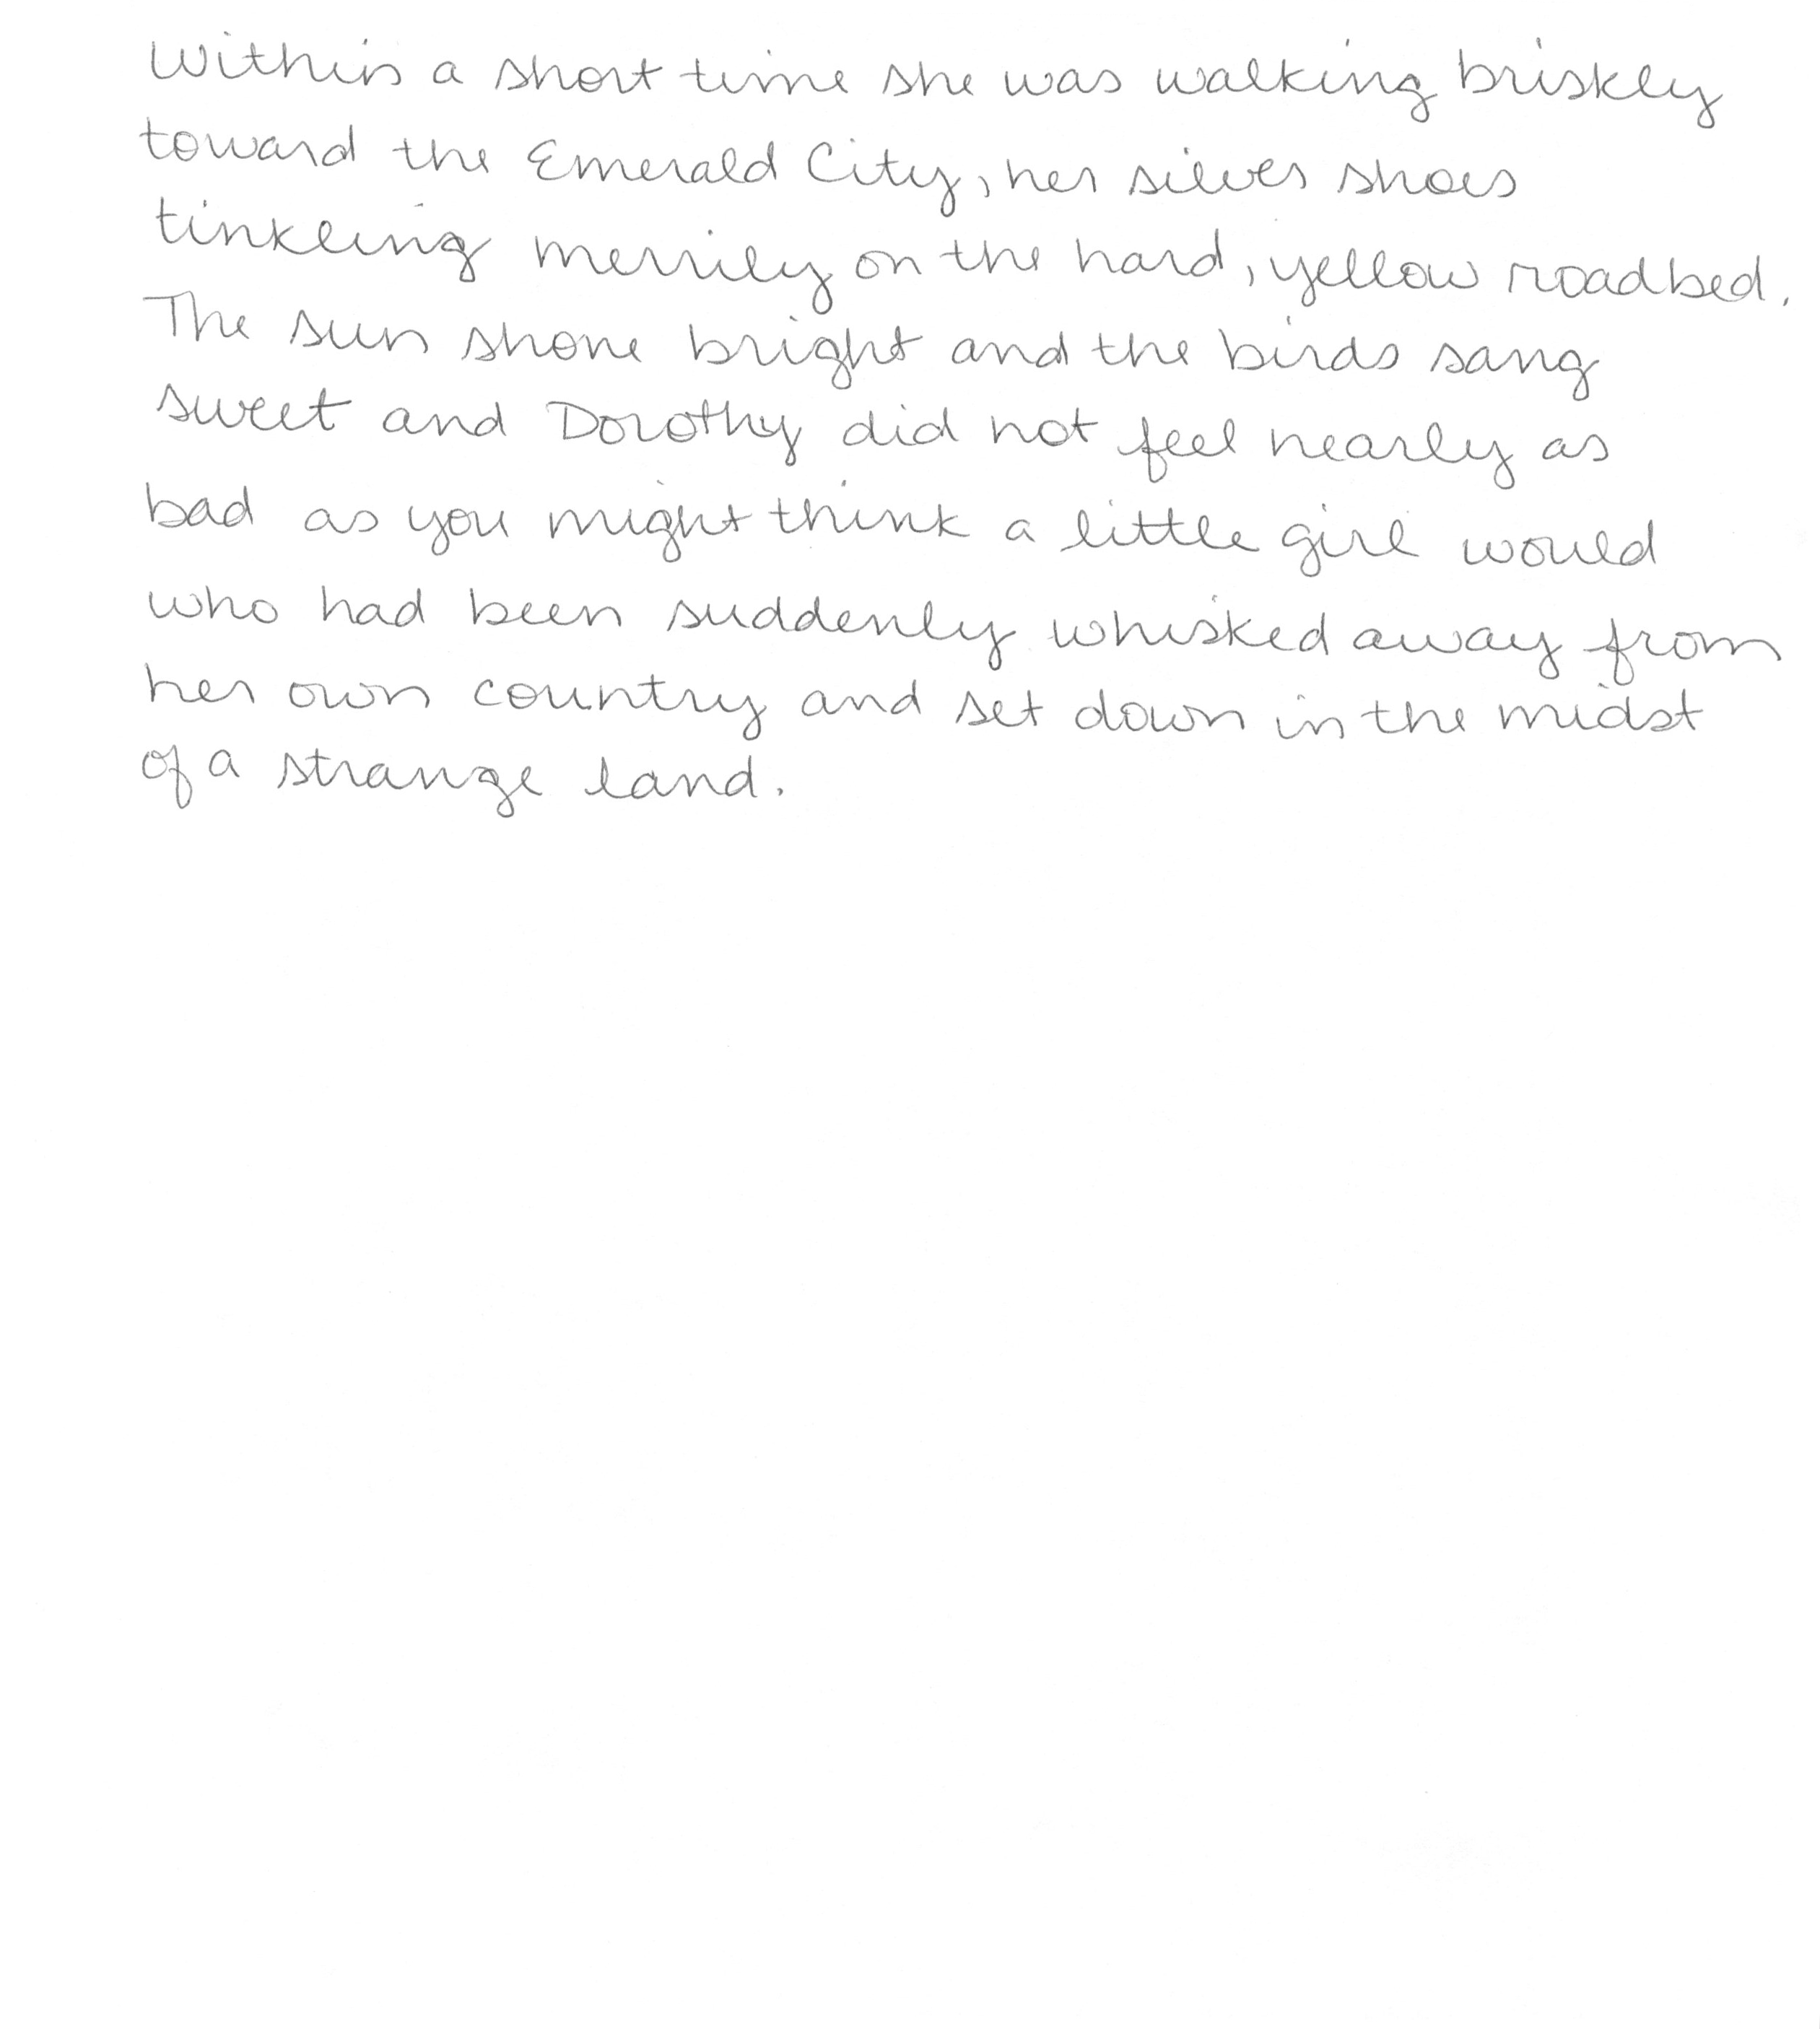 Within a short time she was walking briskly
toward the Emerald City, her silver shoes
tinkling merrily on the hard, yellow roadbed.
The sun shone bright and the birds sang
sweet and Dorothy did not feel nearly as
bad as you might think a little girl would
who had been suddenly whisked away from
her own country and set down in the midst
of a strange land.